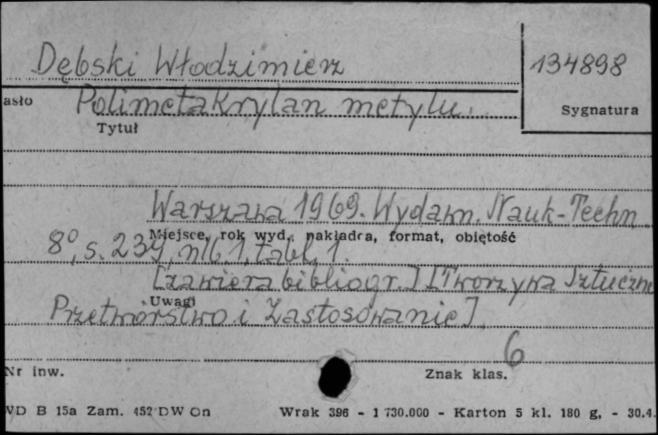 Dębski Włodzimierz
134898
asło
Polimetakrylan metylu.
Tytuł
Sygnatura
Warszawa 1969. Wydawn. Nauk-Techn
Miejsce, rok wyd., nakładca, format, objętość
8°, s. 234, nlb 1, tabl. 1.
[zawiera bibliogr.] [Tworzywa Sztuczne
Uwagi
Przetwórstwo i Zastosowanie]
6
Nr inw.
Znak klas.
VD B 15a Zam. 452 DW On Wrak 396 - 1 730.000 - Karton 5 kl. 180 g, - 30.4.